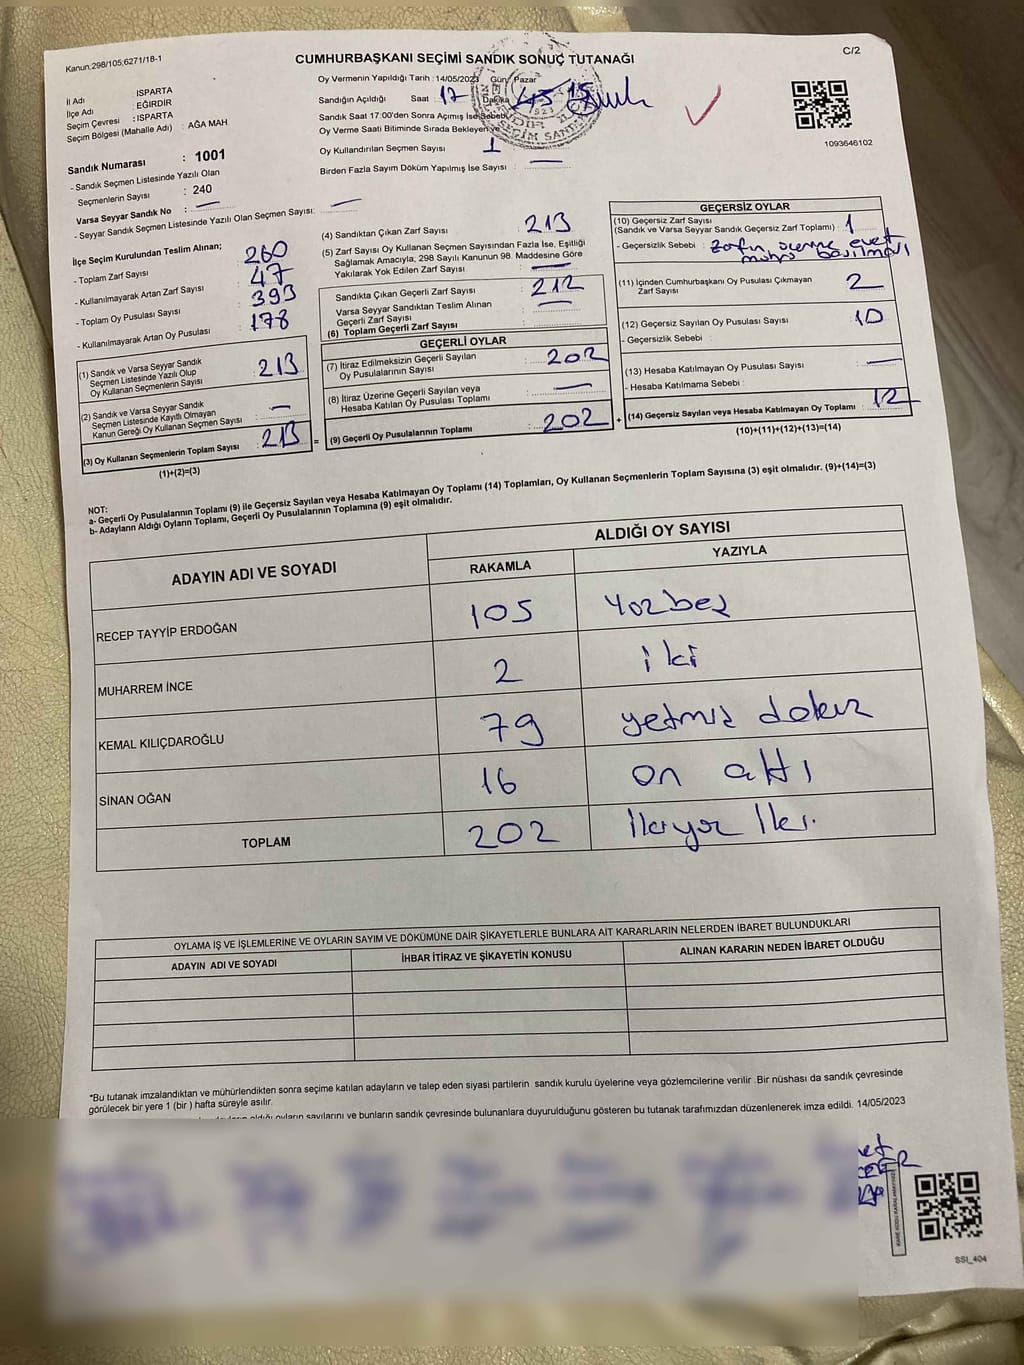 Kanun:298/105;6271/18-1
CUMHURBAŞKANI SEÇİMİ SANDIK SONUÇ TUTANAĞI
C/2
İl Adı : ISPARTA
İlçe Adı : EĞİRDİR
Seçim Çevresi : ISPARTA
Seçim Bölgesi (Mahalle Adı) : AĞA MAH
Sandık Numarası : 1001
- Sandık Seçmen Listesinde Yazılı Olan
Seçmenlerin Sayısı : 240
Varsa Seyyar Sandık No : —
- Seyyar Sandık Seçmen Listesinde Yazılı Olan Seçmen Sayısı: —
Oy Vermenin Yapıldığı Tarih :14/05/2023 Gün: Pazar
Sandığın Açıldığı Saat 17 Dakika 45 15
Sandık Saat 17:00'den Sonra Açımış İse Sebebi
Oy Verme Saati Bitiminde Sırada Bekleyen ve
Oy Kullandırılan Seçmen Sayısı 1
Birden Fazla Sayım Döküm Yapılmış İse Sayısı : —
1093646102
İlçe Seçim Kurulundan Teslim Alınan;
- Toplam Zarf Sayısı : 260
- Kullanılmayarak Artan Zarf Sayısı : 47
- Toplam Oy Pusulası Sayısı : 393
- Kullanılmayarak Artan Oy Pusulası : 178
(1) Sandık ve Varsa Seyyar Sandık
Seçmen Listesinde Yazılı Olup
Oy Kullanan Seçmenlerin Sayısı : 213
(2) Sandık ve Varsa Seyyar Sandık
Seçmen Listesinde Kayıtlı Olmayan
Kanun Gereği Oy Kullanan Seçmen Sayısı : —
(3) Oy Kullanan Seçmenlerin Toplam Sayısı : 213
(1)+(2)=(3)
=
(4) Sandıktan Çıkan Zarf Sayısı : 213
(5) Zarf Sayısı Oy Kullanan Seçmen Sayısından Fazla İse, Eşitliği
Sağlamak Amacıyla, 298 Sayılı Kanunun 98. Maddesine Göre
Yakılarak Yok Edilen Zarf Sayısı : —
Sandıkta Çıkan Geçerli Zarf Sayısı : 212
Varsa Seyyar Sandıktan Teslim Alınan
Geçerli Zarf Sayısı : —
(6) Toplam Geçerli Zarf Sayısı :
GEÇERLİ OYLAR
(7) İtiraz Edilmeksizin Geçerli Sayılan
Oy Pusulalarının Sayısı : 202
(8) İtiraz Üzerine Geçerli Sayılan veya
Hesaba Katılan Oy Pusulası Toplamı : —
(9) Geçerli Oy Pusulalarının Toplamı : 202
+
GEÇERSİZ OYLAR
(10) Geçersiz Zarf Sayısı
(Sandık ve Varsa Seyyar Sandık Geçersiz Zarf Toplamı) : 1
- Geçersizlik Sebebi : Zarfın üzerine evet
mührü basılması
(11) İçinden Cumhurbaşkanı Oy Pusulası Çıkmayan
Zarf Sayısı : 2
(12) Geçersiz Sayılan Oy Pusulası Sayısı : 10
- Geçersizlik Sebebi :
(13) Hesaba Katılmayan Oy Pusulası Sayısı : —
- Hesaba Katılmama Sebebi :
(14) Geçersiz Sayılan veya Hesaba Katılmayan Oy Toplamı : 12
(10)+(11)+(12)+(13)=(14)
NOT:
a- Geçerli Oy Pusulalarının Toplamı (9) ile Geçersiz Sayılan veya Hesaba Katılmayan Oy Toplamı (14) Toplamları, Oy Kullanan Seçmenlerin Toplam Sayısına (3) eşit olmalıdır. (9)+(14)=(3)
b- Adayların Aldığı Oyların Toplamı, Geçerli Oy Pusulalarının Toplamına (9) eşit olmalıdır.
ADAYIN ADI VE SOYADI
ALDIĞI OY SAYISI
RAKAMLA YAZIYLA
RECEP TAYYİP ERDOĞAN 105 Yüzbeş
MUHARREM İNCE 2 iki
KEMAL KILIÇDAROĞLU 79 yetmiş dokuz
SİNAN OĞAN 16 on altı
TOPLAM 202 İkiyüz İki.
OYLAMA İŞ VE İŞLEMLERİNE VE OYLARIN SAYIM VE DÖKÜMÜNE DAİR ŞİKAYETLERLE BUNLARA AİT KARARLARIN NELERDEN İBARET BULUNDUKLARI
ADAYIN ADI VE SOYADI İHBAR İTİRAZ VE ŞİKAYETİN KONUSU ALINAN KARARIN NEDEN İBARET OLDUĞU
*Bu tutanak imzalandıktan ve mühürlendikten sonra seçime katılan adayların ve talep eden siyasi partilerin sandık kurulu üyelerine veya gözlemcilerine verilir .Bir nüshası da sandık çevresinde
görülecek bir yere 1 (bir ) hafta süreyle asılır.
oyların sayılarını ve bunların sandık çevresinde bulunanlara duyurulduğunu gösteren bu tutanak tarafımızdan düzenlenerek imza edildi. 14/05/2023
SSI_404